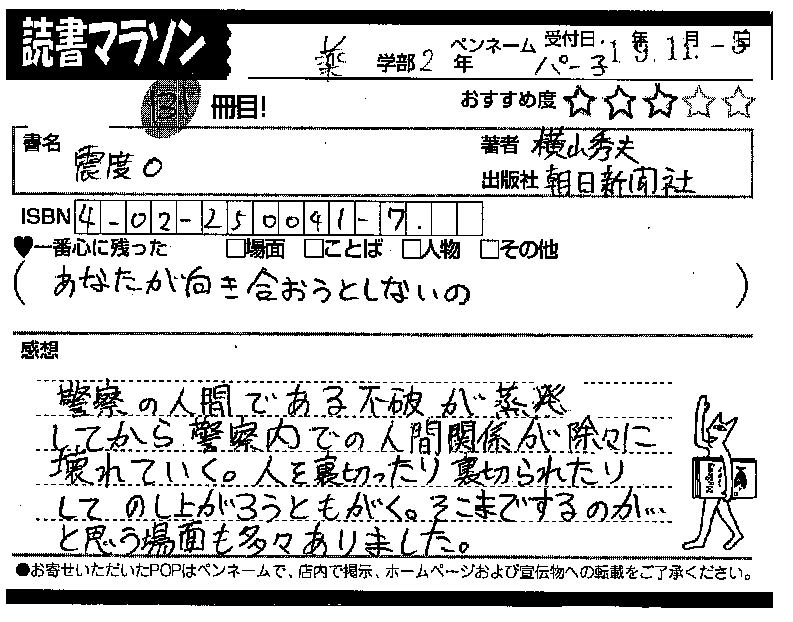 読書マラソン
薬 学部 2 年 ペンネーム パー子 受付日. 年 月 日 19.11.-5
131 冊目! おすすめ度 ☆☆☆☆☆
書名 震度0 著者 横山秀夫
出版社 朝日新聞社
ISBN 4-02-250041-7.
♥一番心に残った □場面 □ことば □人物 □その他
(あなたが向き合おうとしないの)
感想
警察の人間である不破が蒸発
してから警察内での人間関係が除々に
壊れていく。人を裏切ったり裏切られたり
して のし上がろうともがく。そこまでするのか…
と思う場面も多々ありました。
●お寄せいただいたPOPはペンネームで、店内で掲示、ホームページおよび宣伝物への転載をご了承ください。